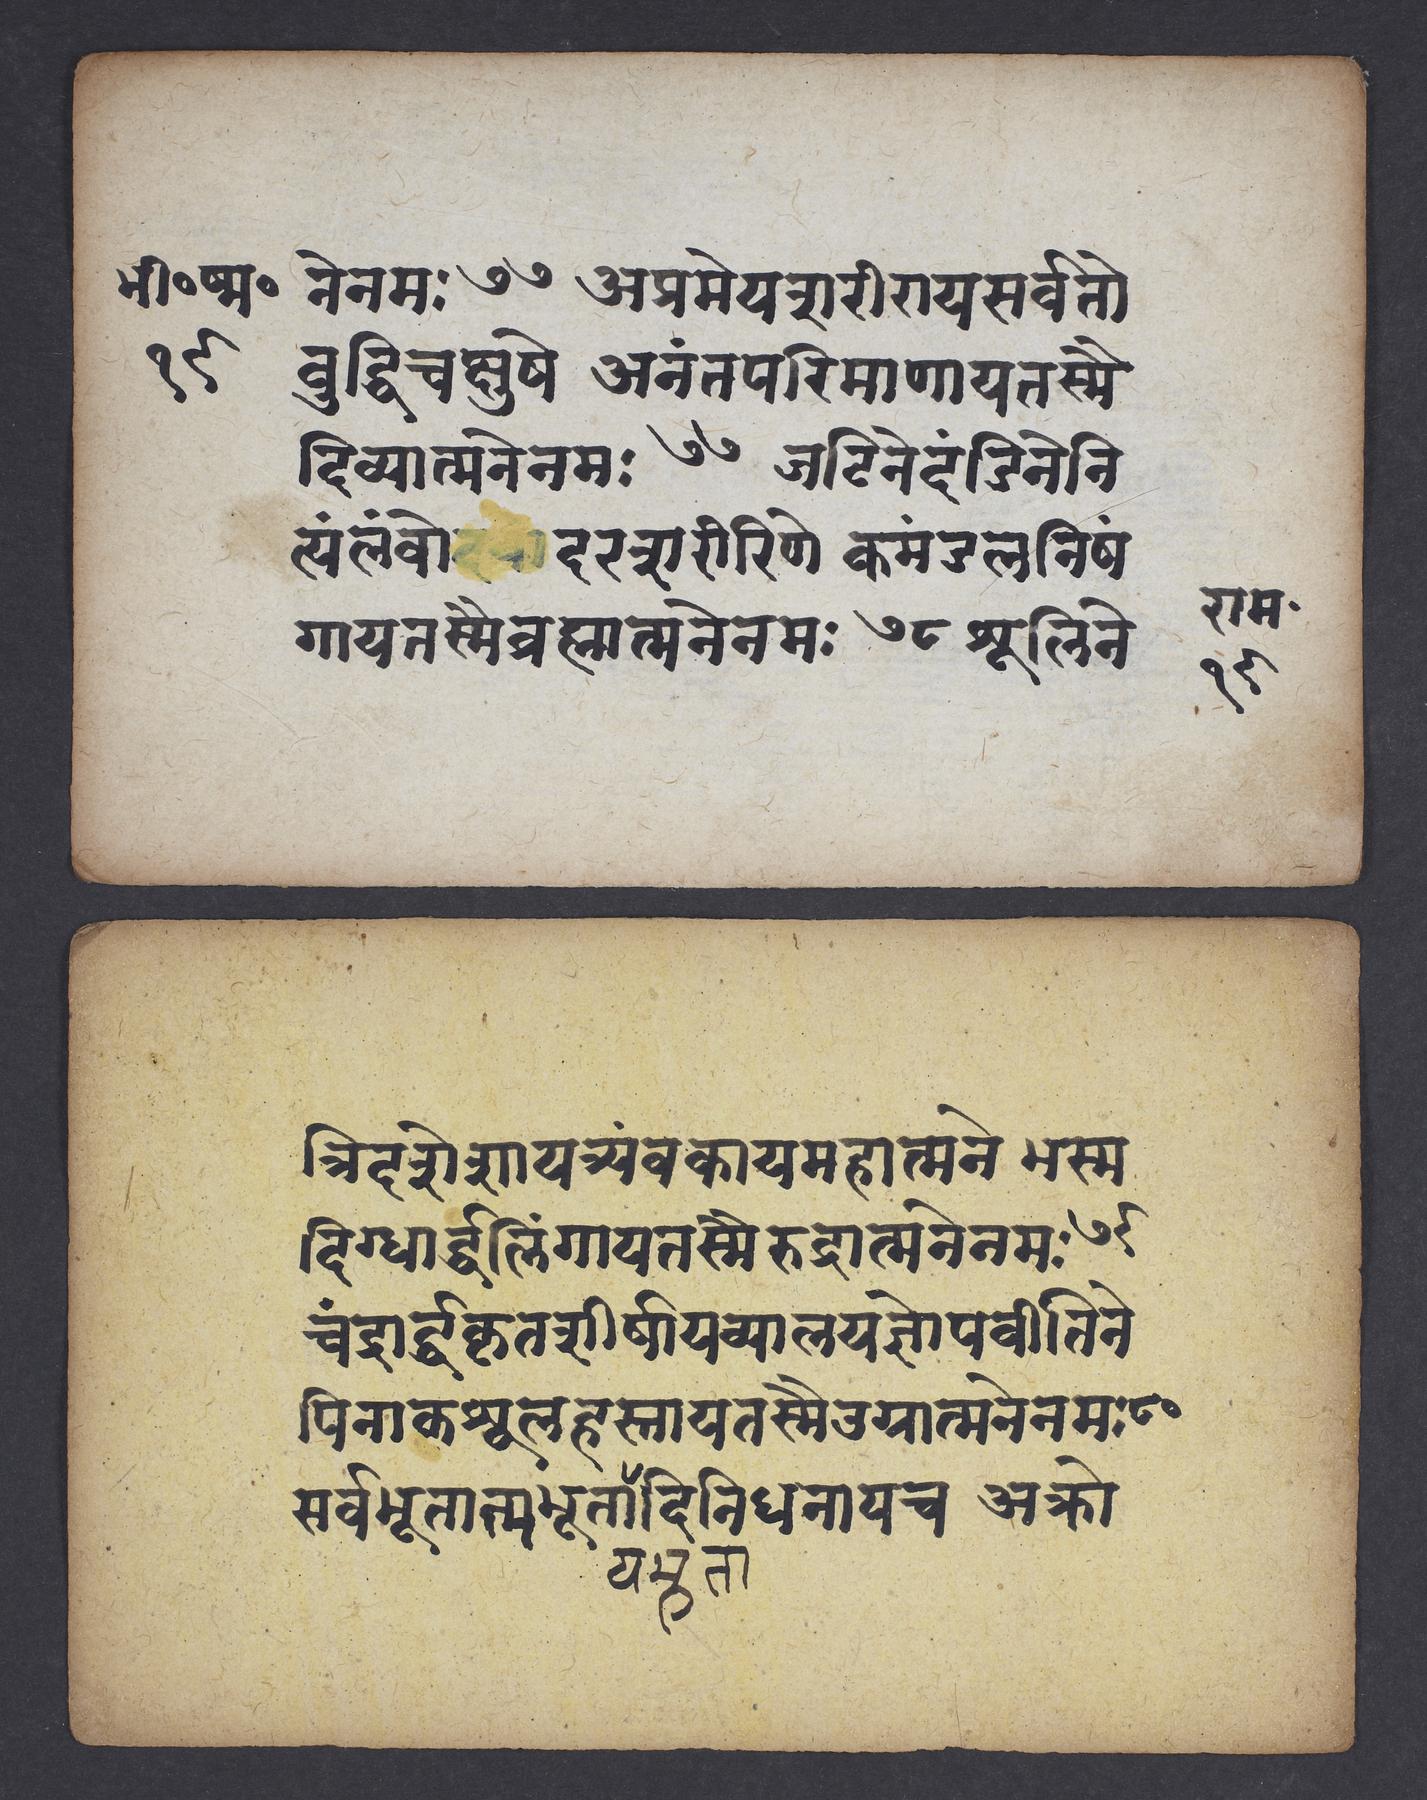 भी०ष्म० नेनमः ७७ अप्रमेयशरीरायसर्वतो
१९ बुद्धिचक्षुषे अनंतपरिमाणायतस्मै
दिव्यात्मनेनमः ७७ जटिनेदंडिनेनि
त्यंलंवोदरशरीरिणे कमंडलनिषं
गायतस्मैव्रह्मात्मनेनमः ७८ शूलिने
राम॰
१९
त्रिदशेशायत्र्यंवकायमहात्मने भस्म
दिग्धार्द्धलिंगायतस्मैरुद्रात्मनेनमः७९
चंद्रार्द्धकृतशीर्षायव्यालयज्ञोपवीतिने
पिनाकशूलहस्तायतस्मैउग्रात्मनेनमः८०
सर्वभूतात्मभूतादिनिधनायच अक्रो
यभूता